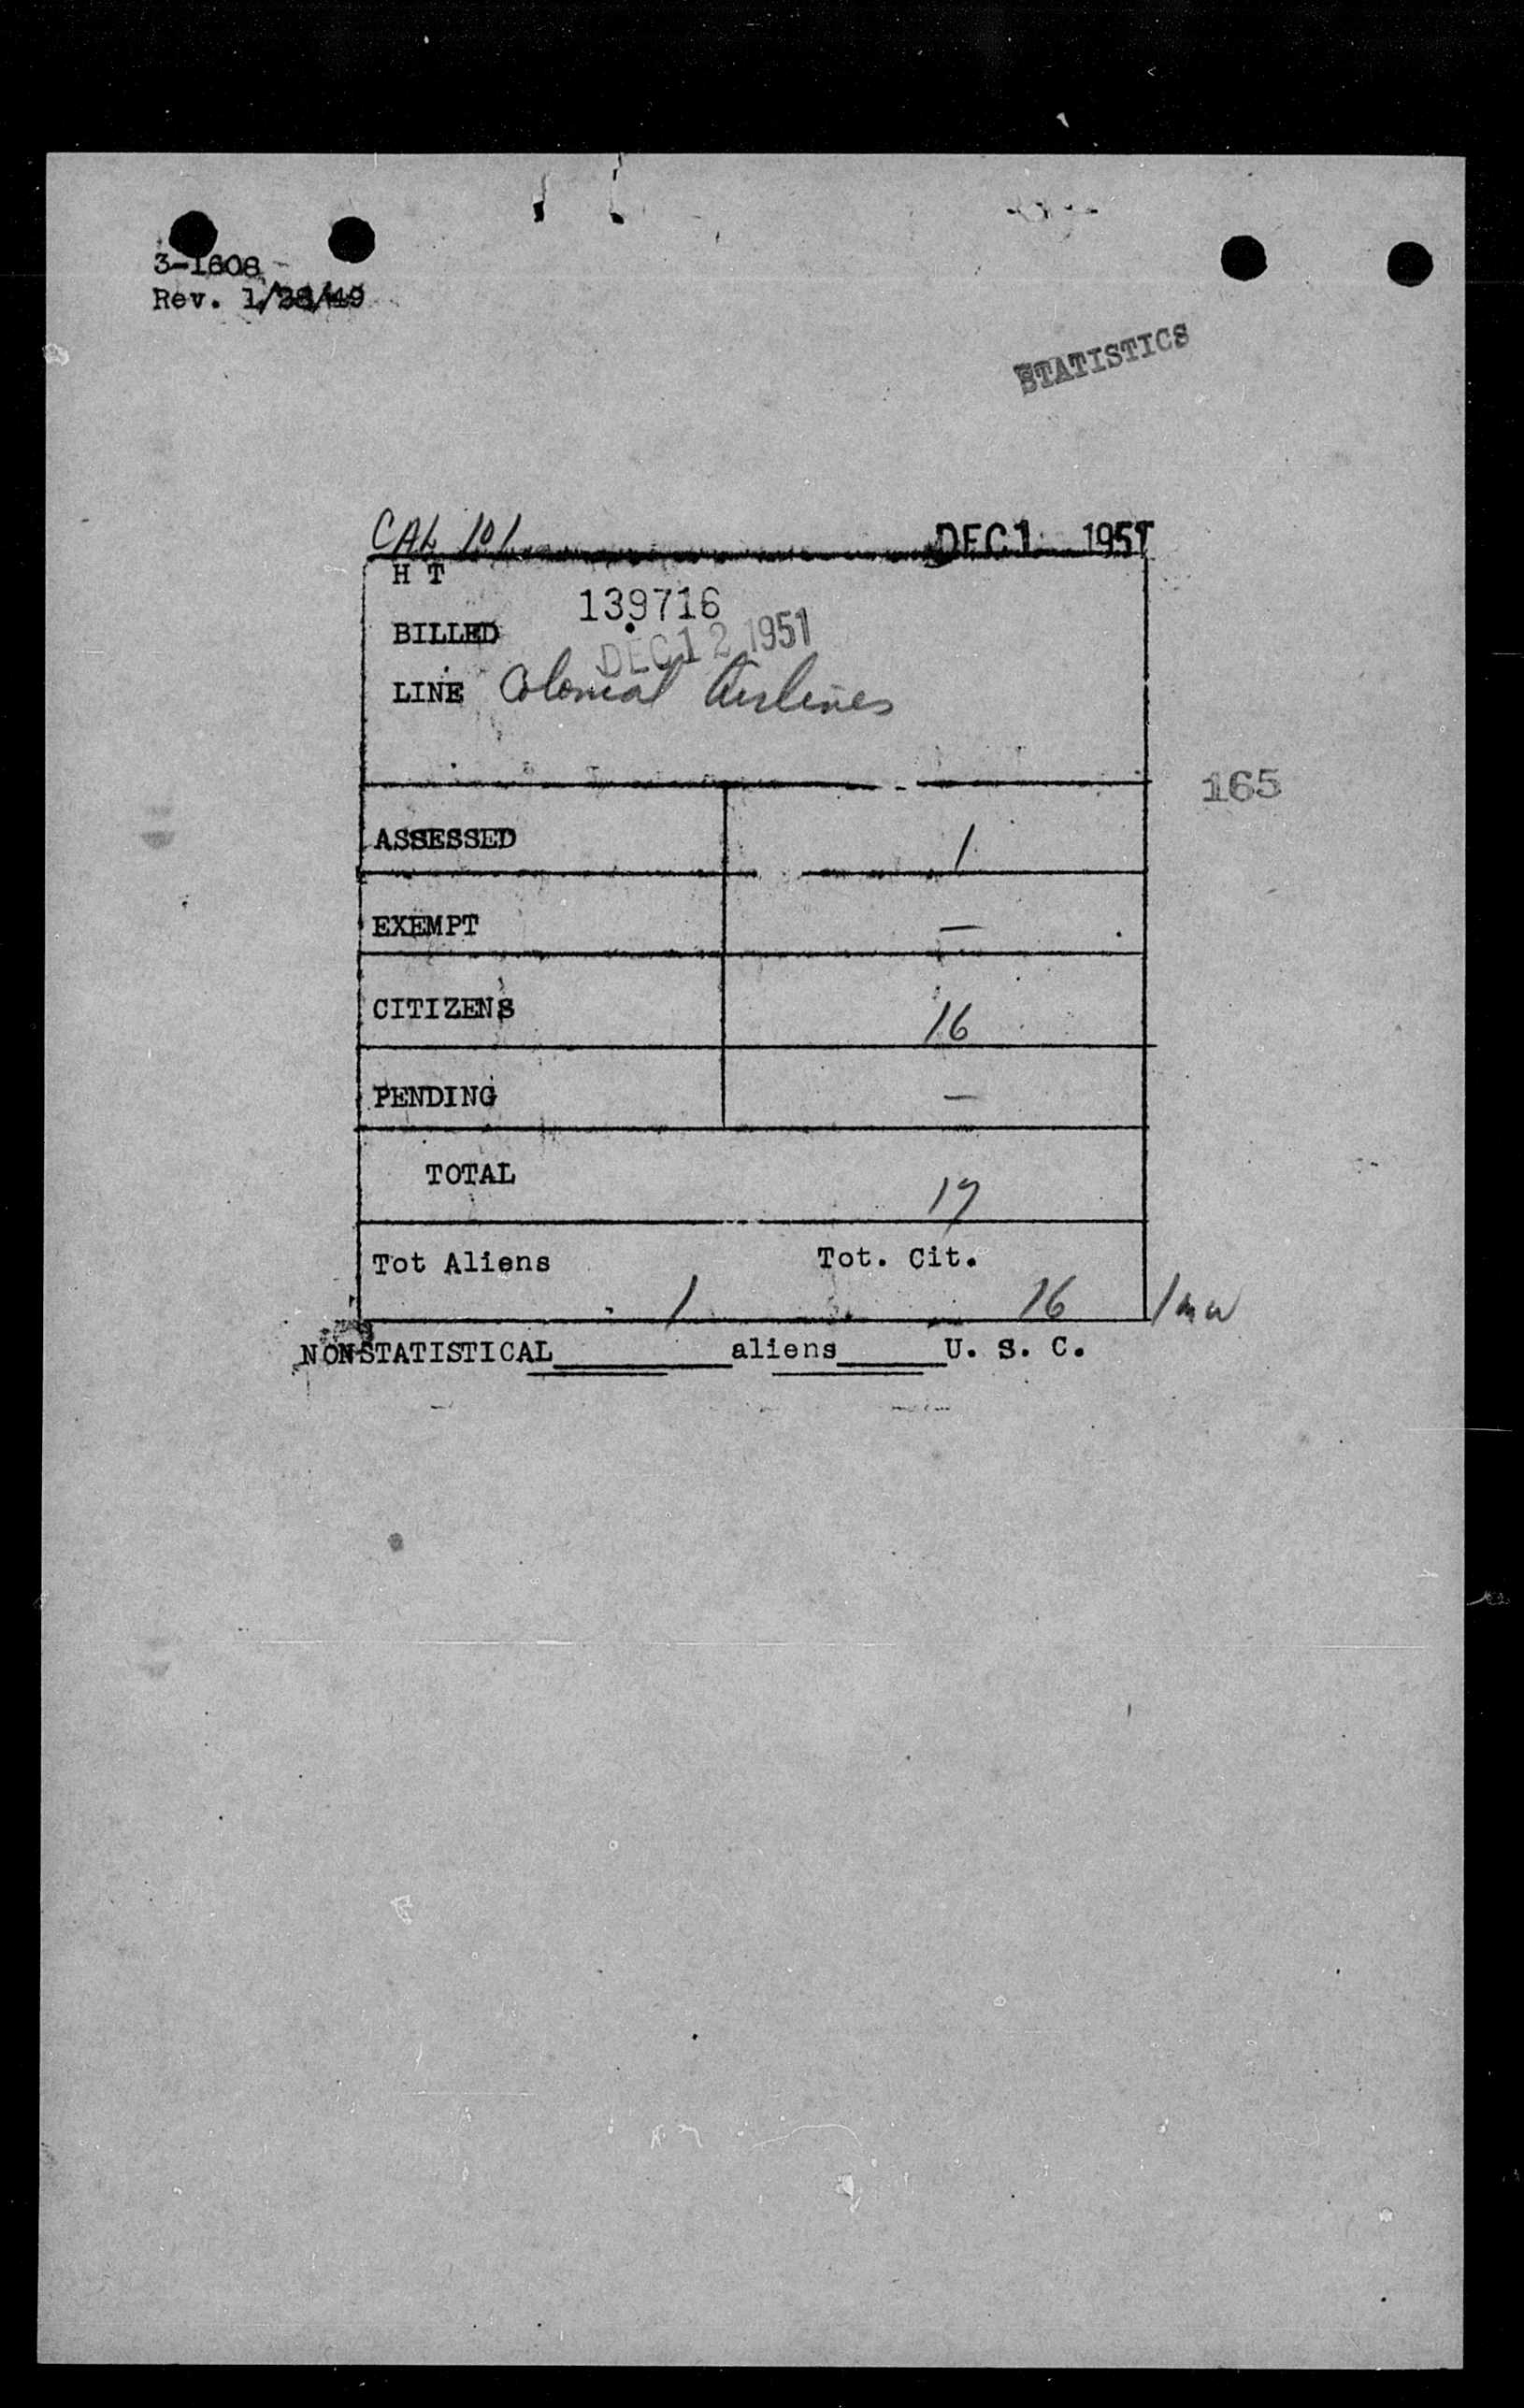 3-1608
Rev. 1/28/49
STATISTICS
CAL 101 DEC 1 1951
H T
139716
BILLED
DEC 12 1951
LINE Colonial Airlines
165
ASSESSED 1
EXEMPT —
CITIZENS 16
PENDING —
TOTAL 17
Tot Aliens Tot. Cit.
1 16 1
NONSTATISTICAL______aliens______U. S. C.